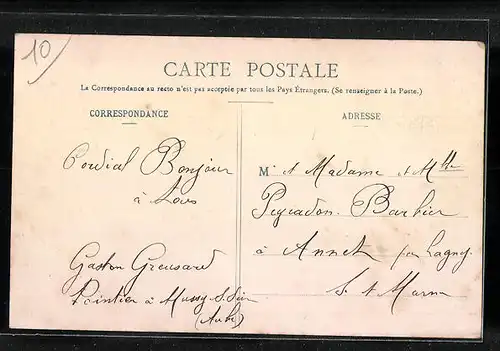 10
CARTE POSTALE
La Correspondance au recto n'est pas acceptée par tous les Pays Étrangers. (Se renseigner à la Poste.)
CORRESPONDANCE
Cordial Bonjour
à tous
Gaston
à Mussy s. Seine
(Aube)
ADRESSE
M et Madame et Mlle
Barbier
à Annet par Lagny
S. et Marne